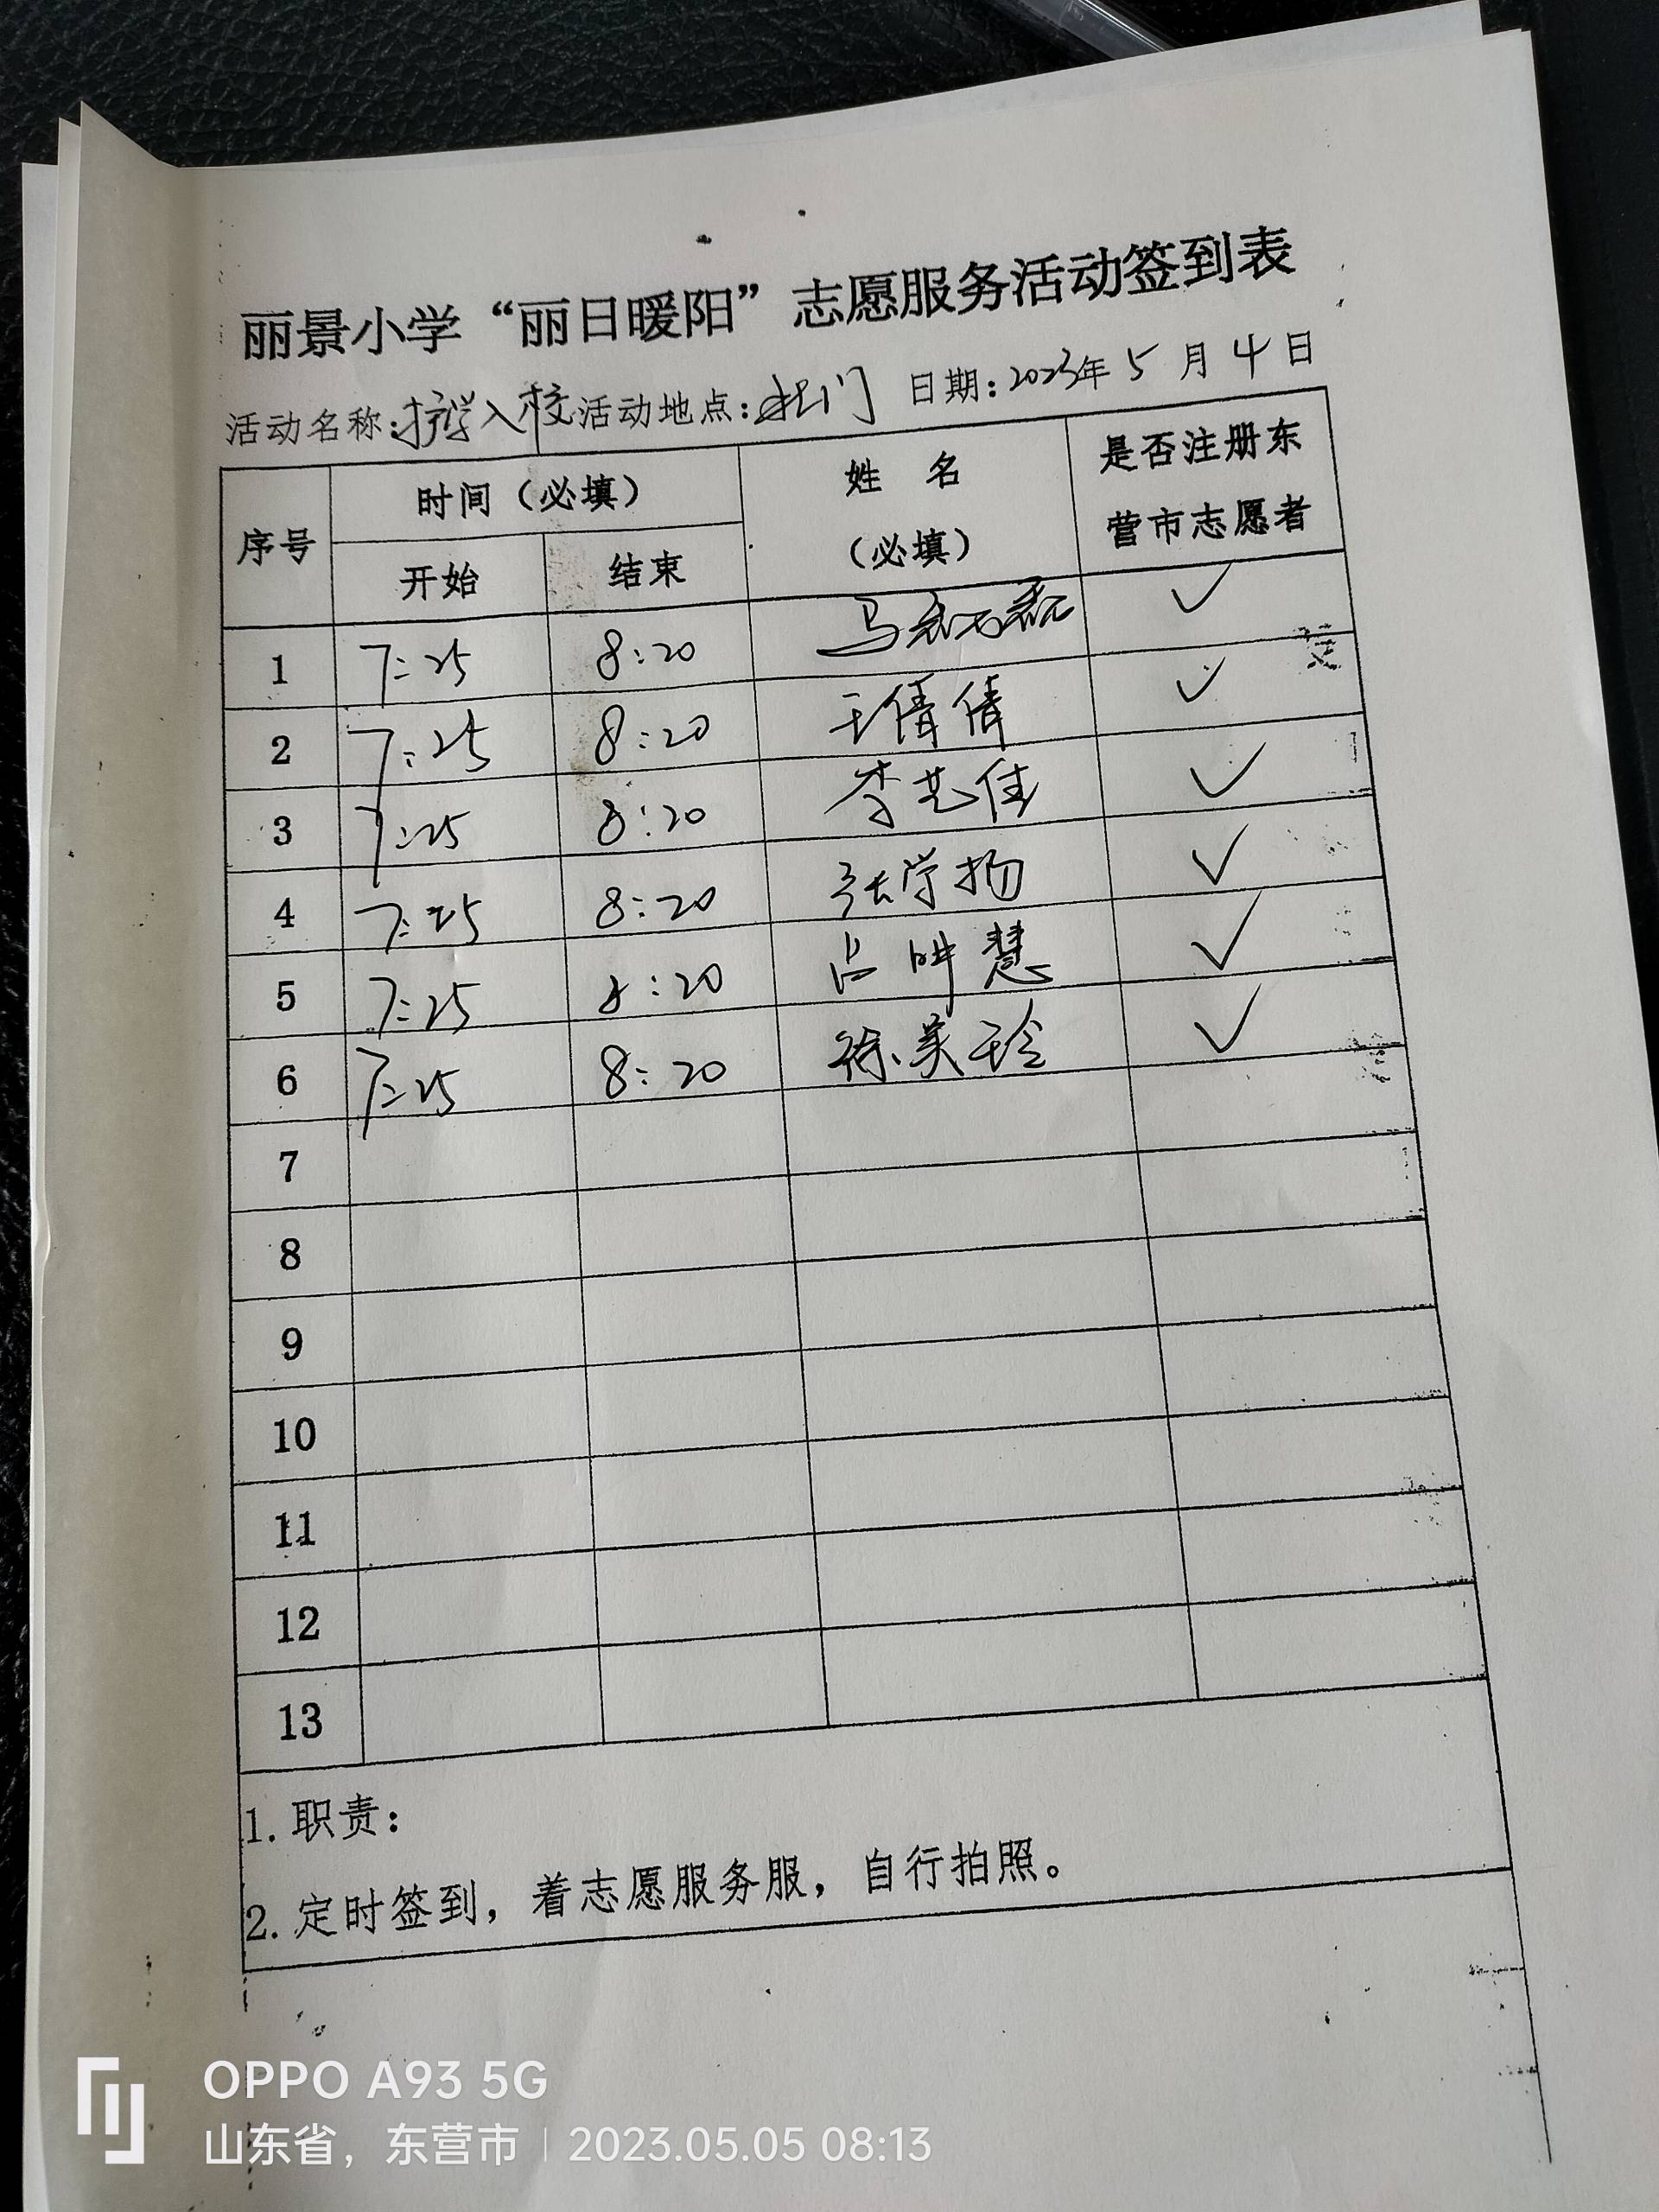 丽景小学“丽日暖阳”志愿服务活动签到表
活动名称:护学入校 活动地点:校门 日期:2023年5月4日
序号 时间（必填） 姓 名（必填） 是否注册东营市志愿者
开始 结束
1 7:25 8:20 马 ✓
2 7:25 8:20 王倩倩 ✓
3 7:25 8:20 李艺佳 ✓
4 7:25 8:20 张学扬 ✓
5 7:25 8:20 慧 ✓
6 7:25 8:20 徐美玲 ✓
7
8
9
10
11
12
13
1.职责：
2.定时签到，着志愿服务服，自行拍照。
OPPO A93 5G
山东省，东营市 | 2023.05.05 08:13